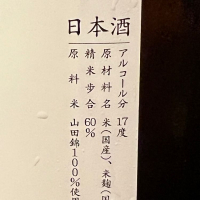 日本酒
アルコール分 17度
原材料名 米(国産)、米麹(国
精米歩合 60%
原料米 山田錦100%使用